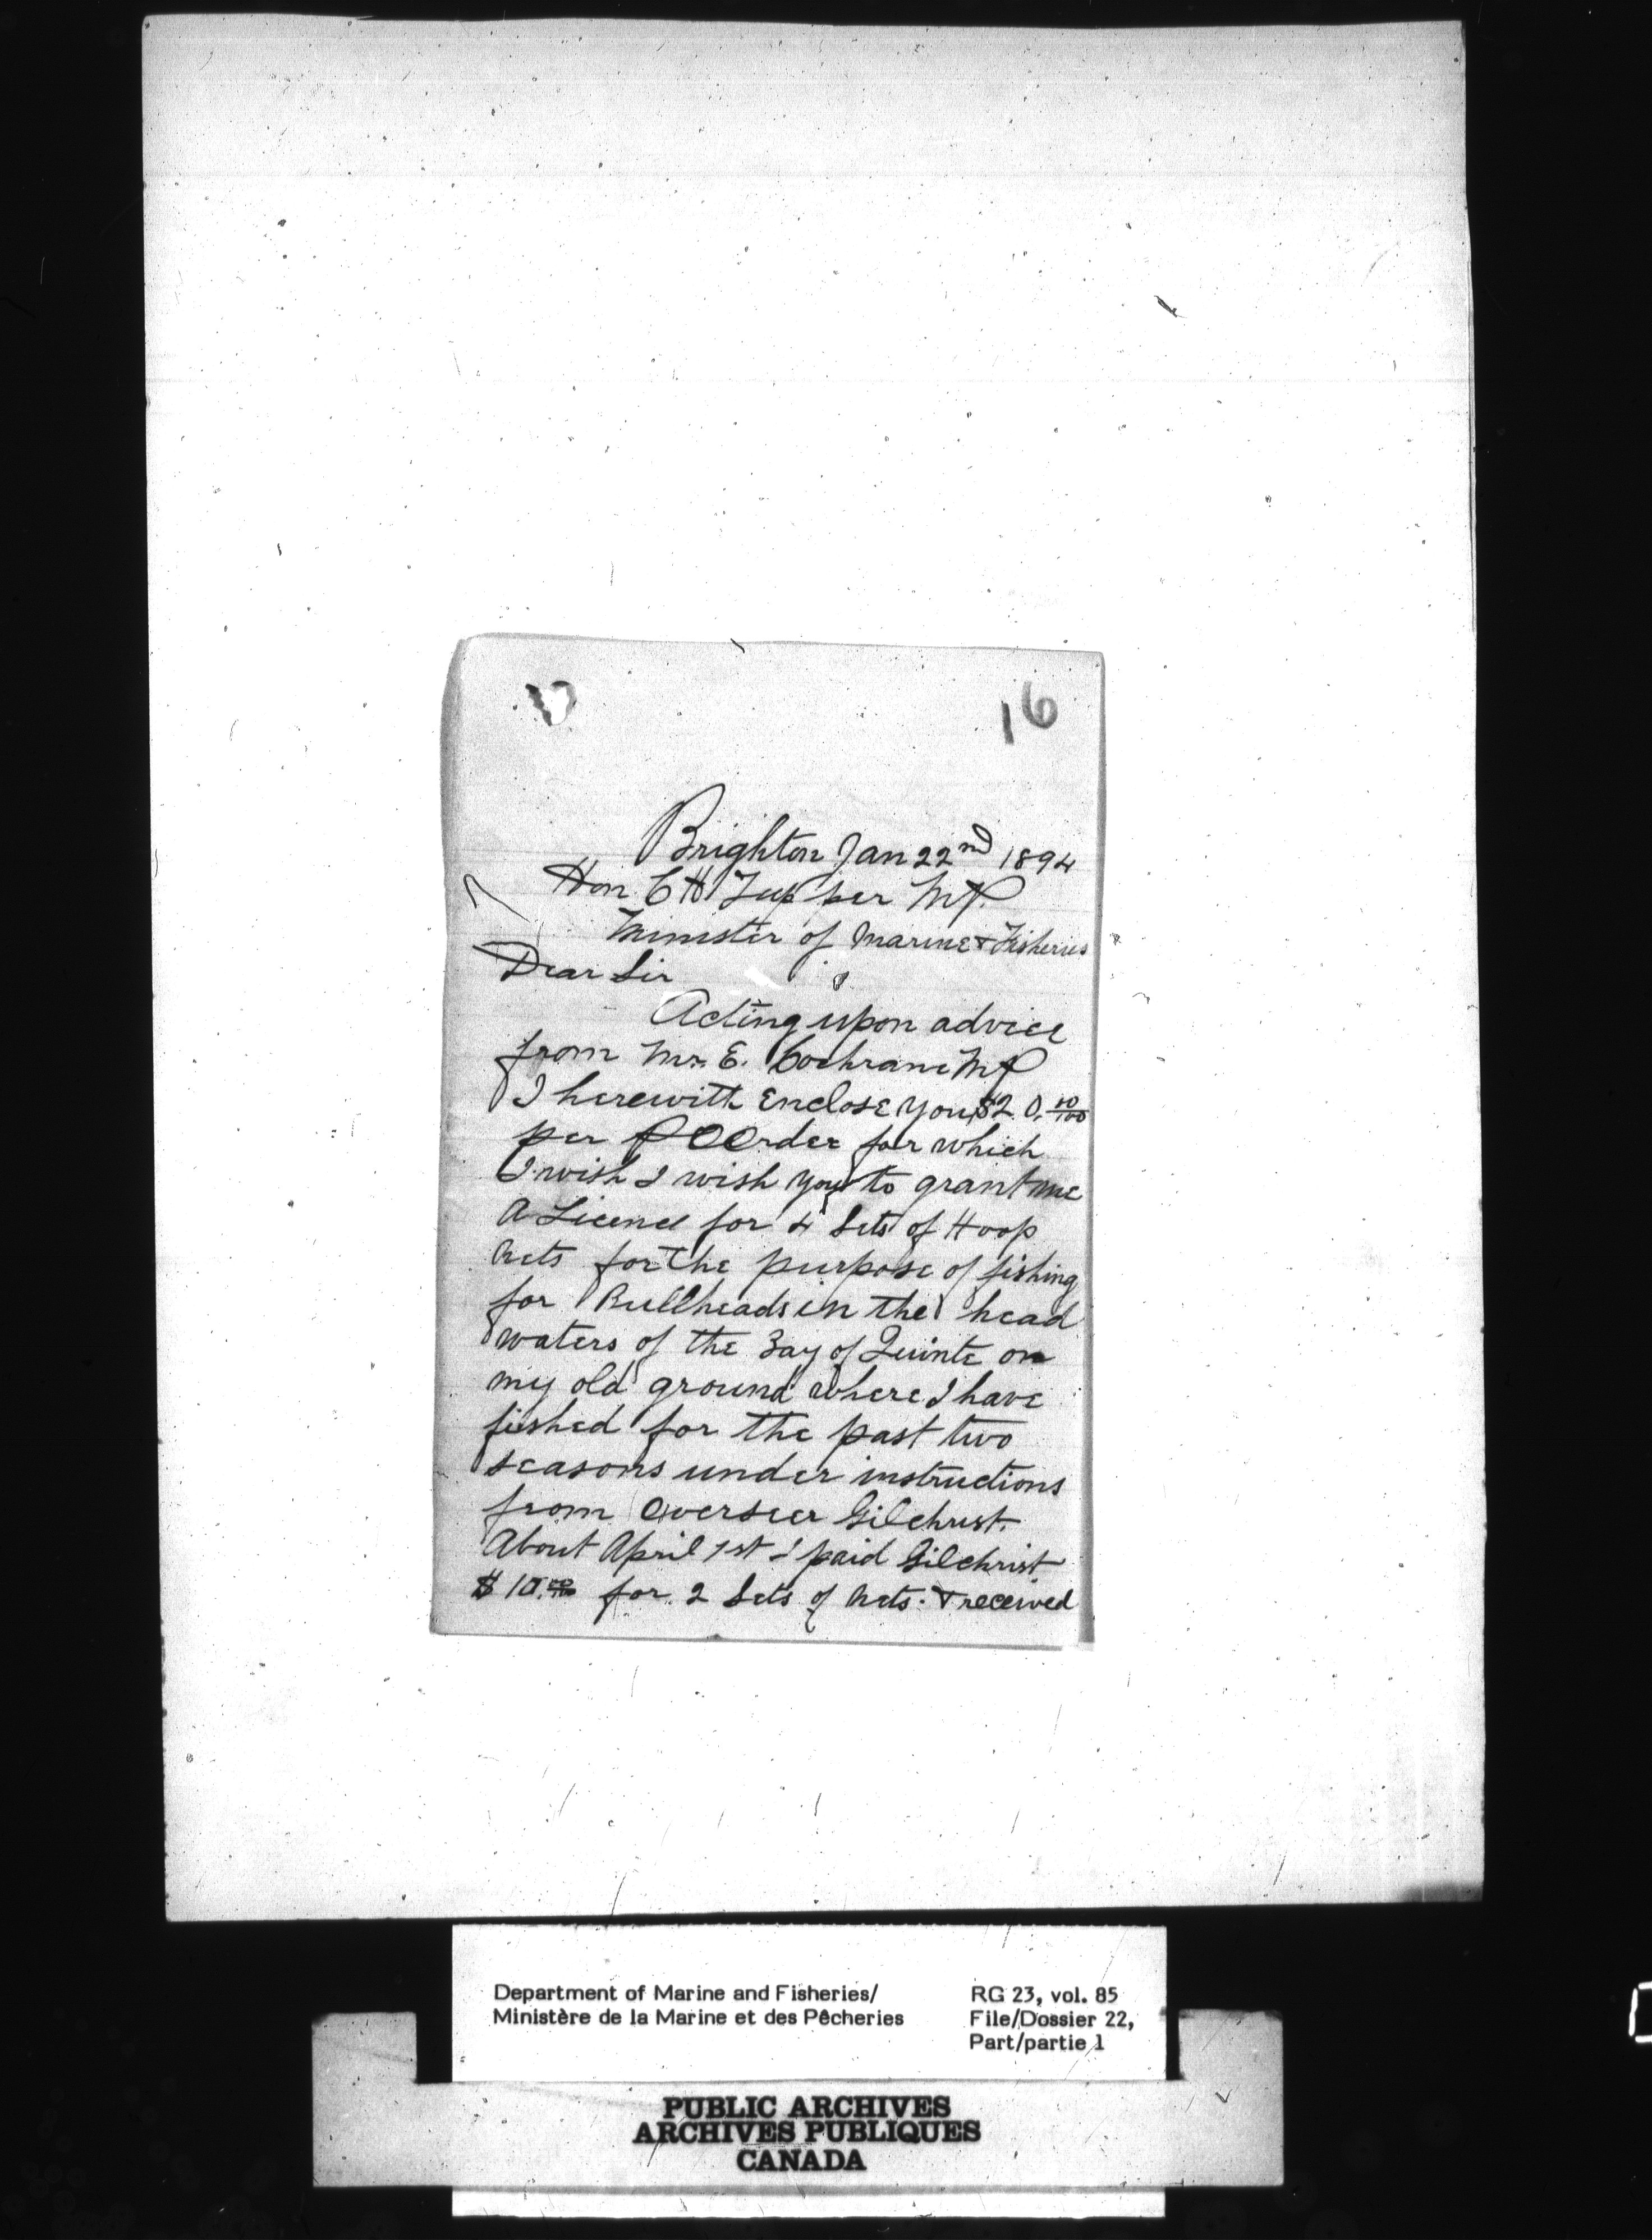 16
Brighton Jan 22nd 1894
Hon. C H Tupper M.P.
Minister of Marine & Fisheries
Dear Sir
Acting upon advice
from Mr. E. Cochrane MP
I herewith Enclose you $20.00/100
per P O Order for which
I wish I wish you to grant me
A Licence for 4 Sets of Hoop
Nets for the purpose of fishing
for Bullheads in the head
waters of the Bay of Quinte on
my old ground where I have
fished for the past two
seasons under instructions
from Overseer Gilchrist.
About April 1st I paid Gilchrist
$10.00/100 for 2 Sets of Nets. & received
Department of Marine and Fisheries/
Ministère de la Marine et des Pêcheries
RG 23, vol. 85
File/Dossier 22,
Part/partie 1
PUBLIC ARCHIVES
ARCHIVES PUBLIQUES
CANADA